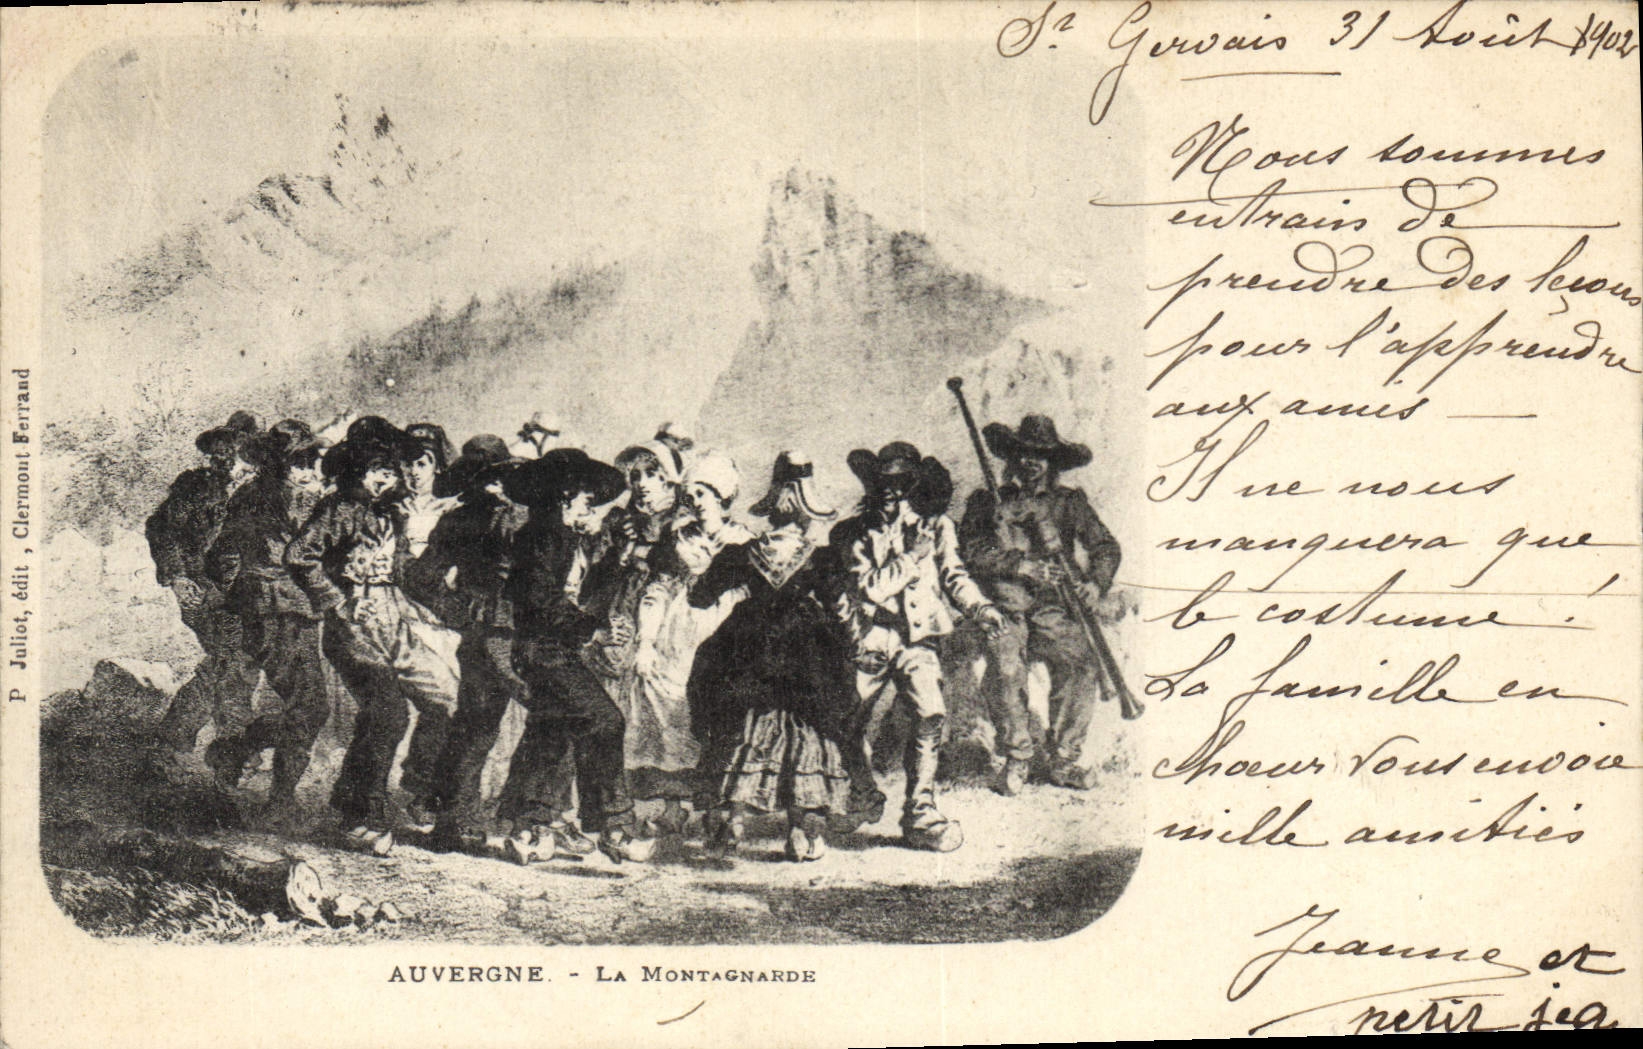 St Gervais 31 Août 1902
Nous sommes
entrain de
prendre des leçons
pour l'apprendre
aux amis —
Il ne nous
manquera que
le costume !
La famille en
choeur vous envoie
mille amitiés
Jeanne et
petit jea
P Juliot, édit, Clermont Ferrand
AUVERGNE. - LA MONTAGNARDE